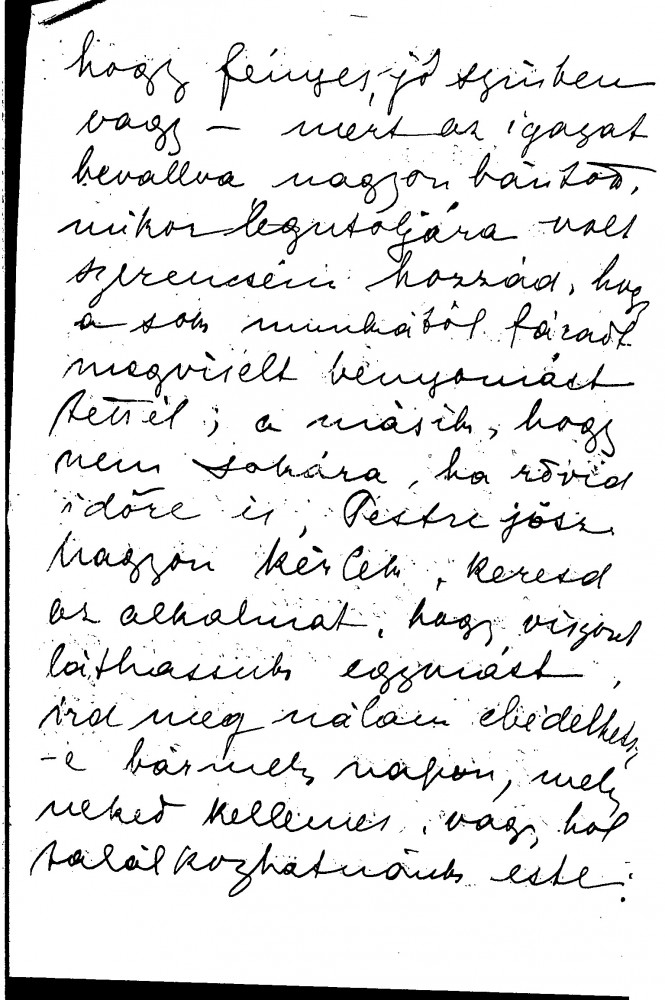 hogy fényes, jó színben
vagy – mert az igazat
bevallva nagyon bántott,
mikor legutoljára volt
szerencsém hozzád, hogy
a sok munkától fáradt
megviselt benyomást
tettél; a másik, hogy
nem sokára, ha rövid
időre is, Pestre jösz.
Nagyon kérlek, keresd
az alkalmat, hogy viszont
láthassuk egymást,
ird meg nálam ebédelhetsz
-e bármely napon, mely
neked kellemes, vagy hol
találkozhatnánk este.